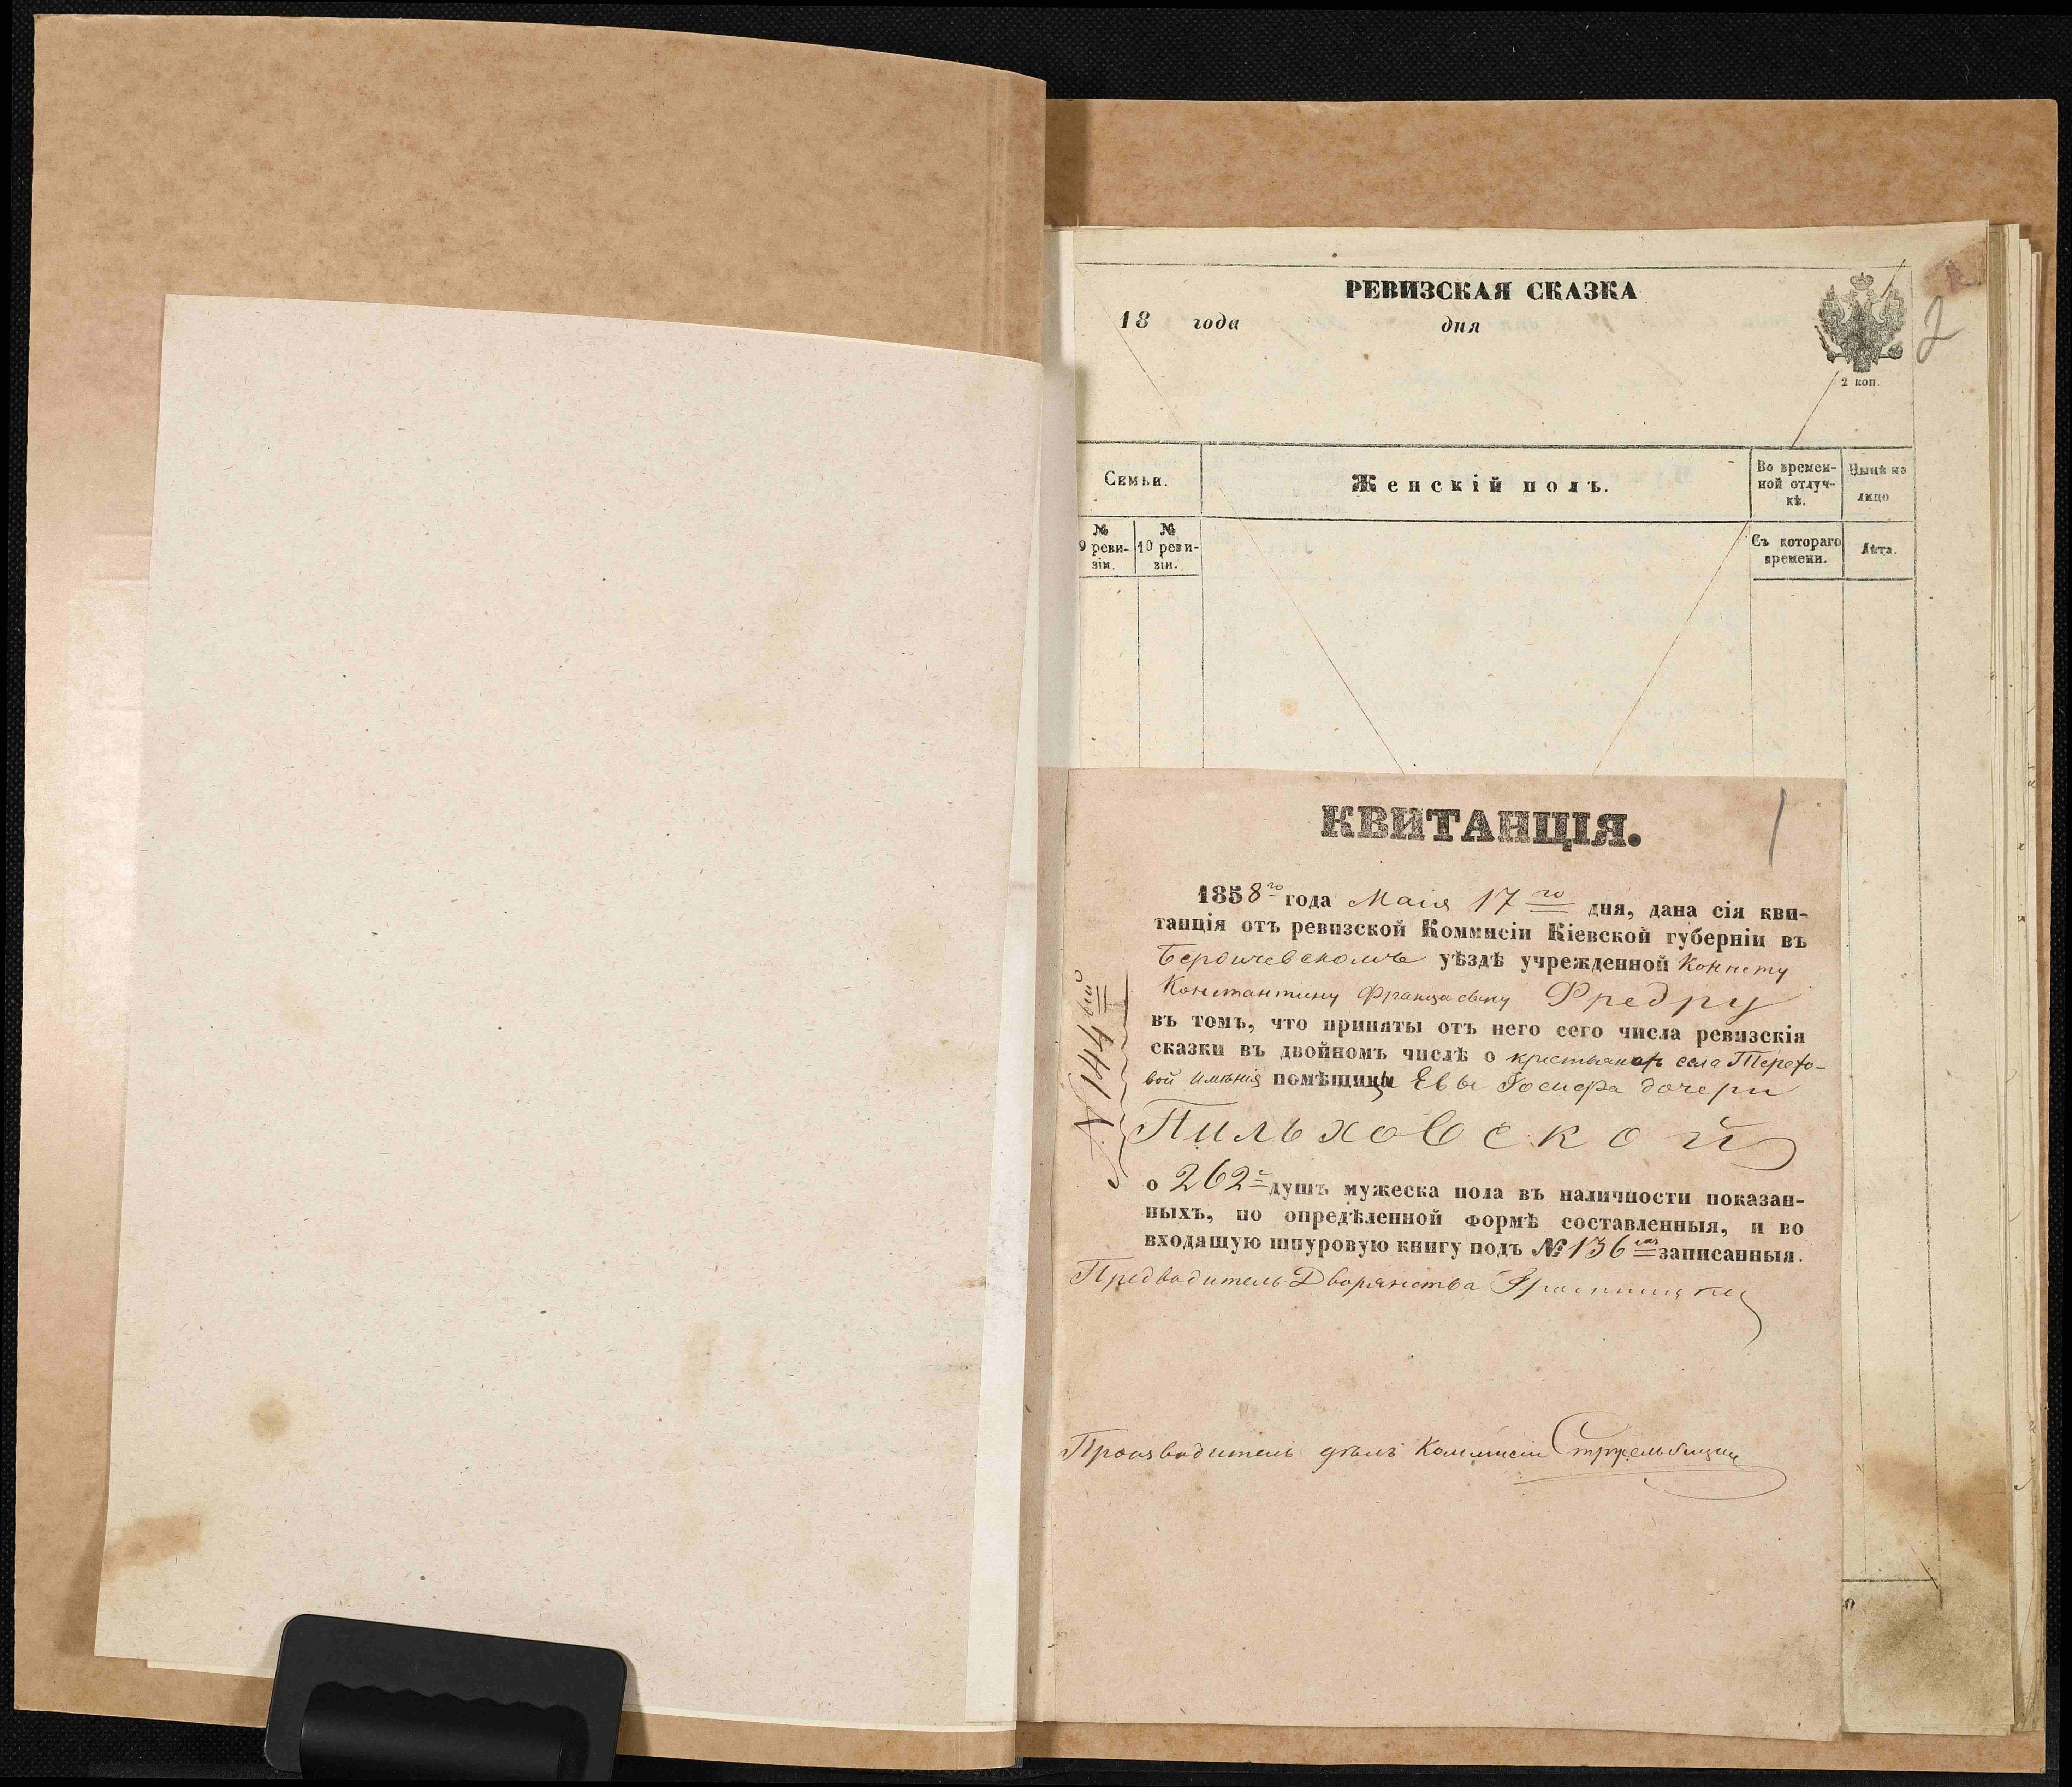 РЕВИЗСКАЯ СКАЗКА
18 года дня
2
2 коп.
Семьи.
Женскій полъ.
Во времен-
ной отлуч-
кѣ.
Нынѣ на
лицо
№
9 реви-
зіи.
№
10 реви-
зіи.
Съ котораго
времени.
Лѣта.
КВИТАНЦІЯ.
1
1858го года Маія 17го дня, дана сія кви-
танція отъ ревизской Коммисіи Кіевской губерніи въ
Бердичевскомъ уѣздѣ учрежденной
Константину Францовичу Фредру
въ томъ, что приняты отъ него сего числа ревизскія
сказки въ двойномъ числѣ о крестьянахъ села
вой Имѣнія помѣщицы Евы Іосифа дочери
Пильховской
о 262х душъ мужеска пола въ наличности показан-
ныхъ, по опредѣленной формѣ составленныя, и во
входящую шнуровую книгу подъ № 136 записанныя.
Предводитель Дворянства
Производитель дѣлъ Коммисіи Стржельбицкій
№ 144